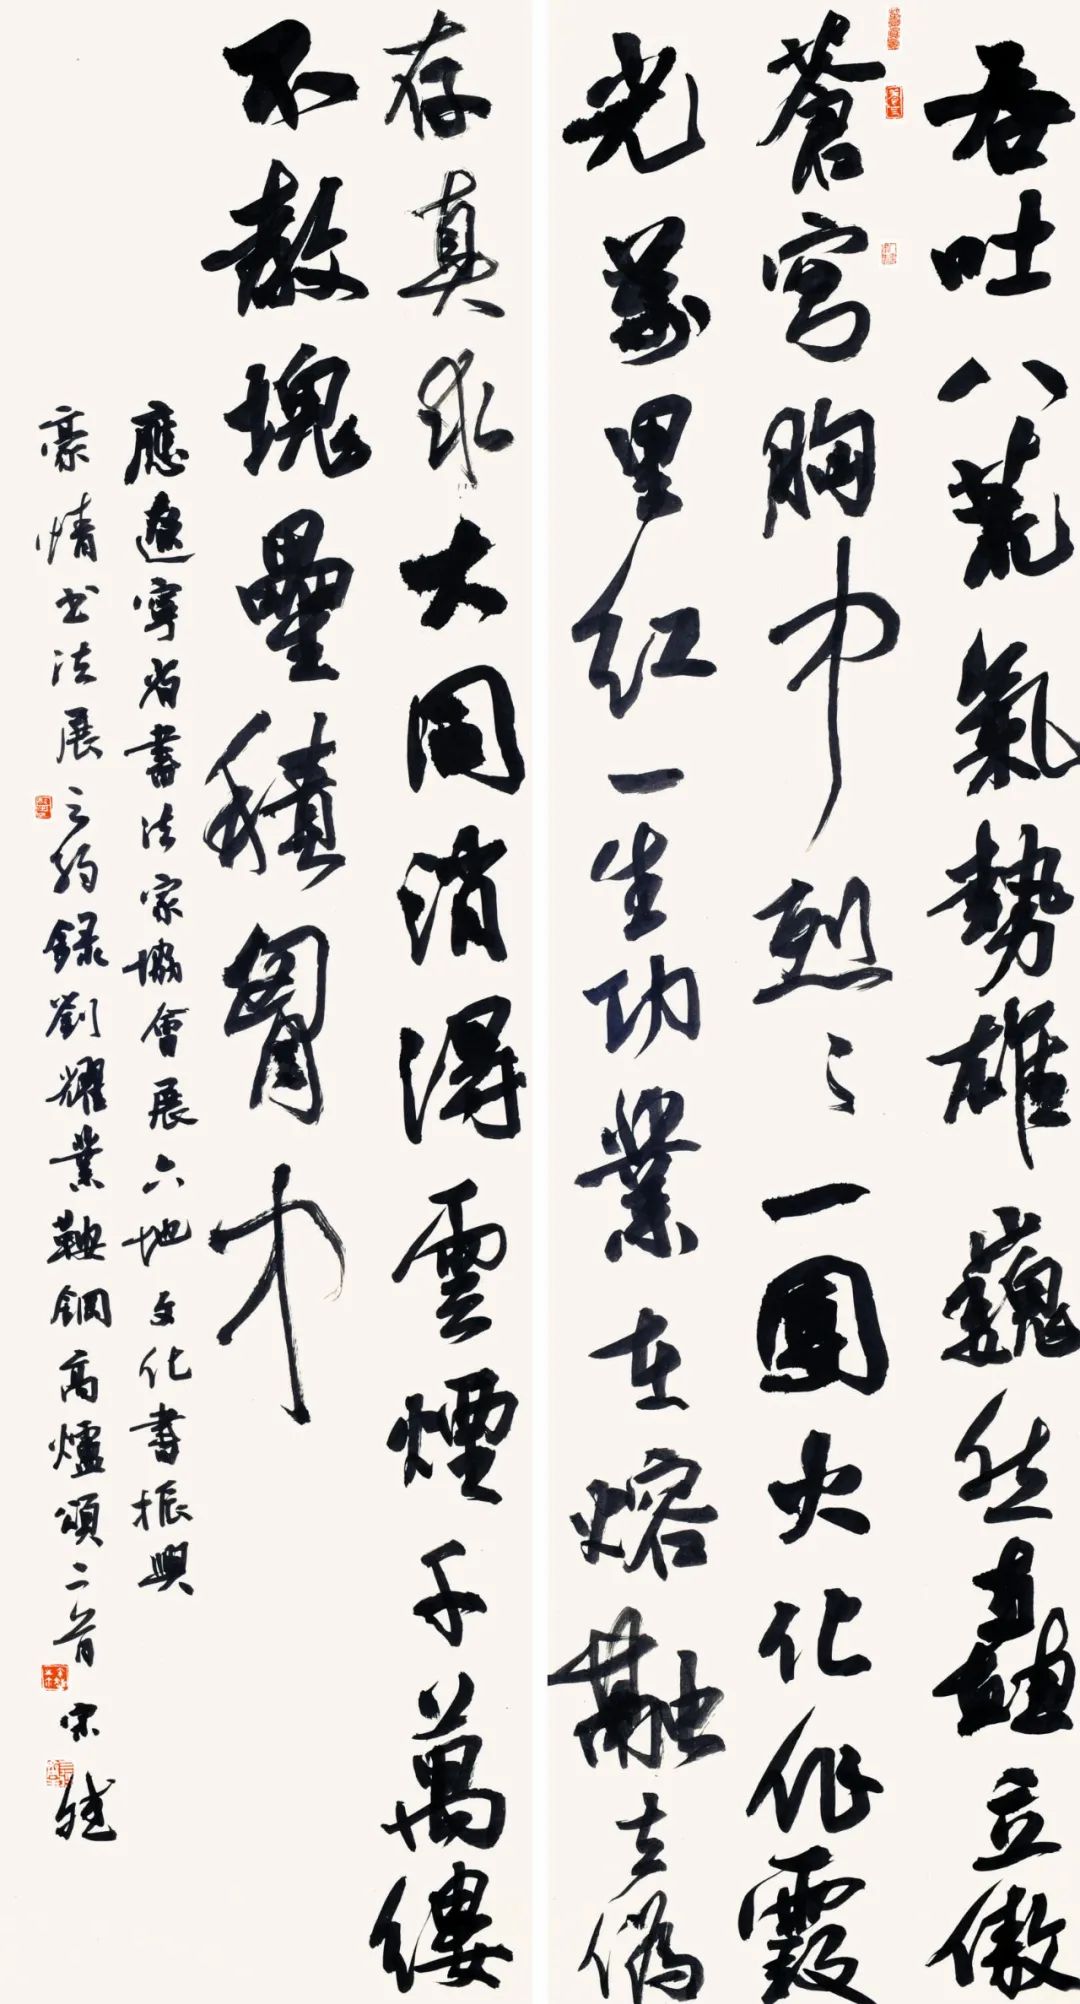 吞吐八荒氣勢雄巍然矗立傲
蒼穹胸中烈〻一團火化作霞
光萬里紅一生功業在熔融去偽
存真求大同消得雲煙千萬縷
不教塊壘積胷中
應遼寧省書法家協會展六地文化書振興
豪情书法展之約録劉耀業鞍鋼高爐頌二首宋